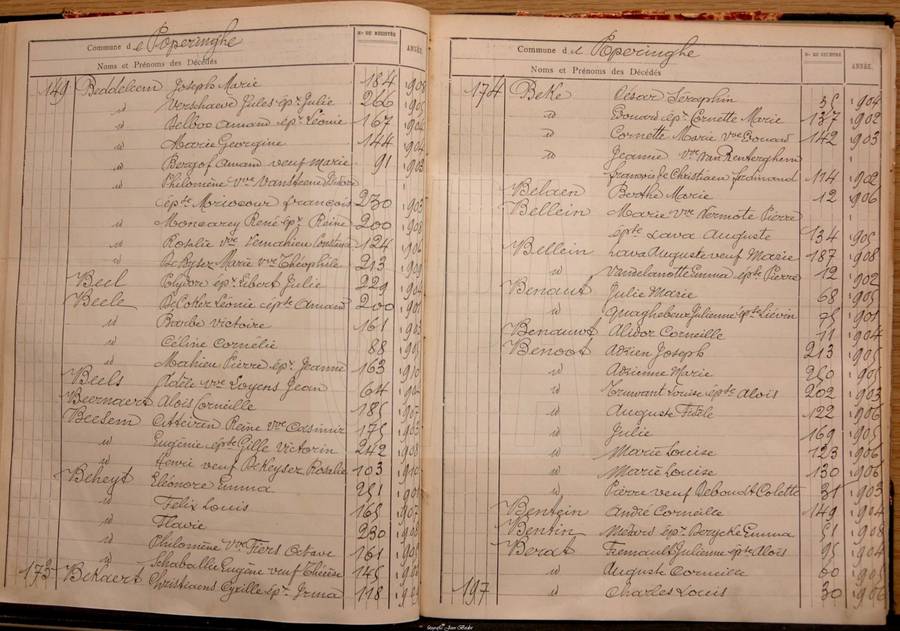 Commune de Poperinghe
Nos DE REGISTRE
ANNÉE.
Noms et Prénoms des Décédés
149 Beddeleem Joseph Marie 184 1908
id Verschaeve Jules épx Julie 266 1905
id Delboo Amand épx Léonie 167 1904
id Marie Georgine 144 1904
id Bergof Amand veuf Marie 91 1903
id Philomène Vve
épte François 230 1903
id Moncarey René épx Reine 200 1908
id Rosalie vve Lemahieu Constant 124 1906
id DeKyser Marie vve Théophile 213
Beel Polydore épx Libert Julie 229
Beele DeCoker Léonie épte Amand 200 1901
id Barbe Victoire 161
id Céline Cornélie 88
id Mahieu Pierre épx Jeanne 163 1910
Beels Adèle vve Loyens Jean 64
Beernaert Aloïs Corneille 185
Beesem Reine vve Casimir 175
id Eugénie épte Gille Victorin 242
id Henri veuf DeKeyser Rosalie 103
Beheyt Eléonore Emma 251
id Félix Louis 165
id Flavie 230
id Philomène vve Fiers Octave 161
id Schaballie Eugène veuf Thérèse 145
173 Bekaert Christiaens Cyrille épx Irma 118
Commune de Poperinghe
Nos DE REGISTRE
ANNÉE.
Noms et Prénoms des Décédés
174 Beke César Séraphin 35 1904
id Edouard épx Cornette Marie 137 1902
id Cornette Marie Vve Edouard 142 1903
id Jeanne Vve Van Renterghem
François & Christiaen Ferdinand 114 1902
Belaen Berthe Marie 12 1906
Bellein Marie vve Vermote Pierre
épte Lava Auguste 134 1905
Bellein Lava Auguste veuf Marie 187 1908
id Vandelanotte Emma épte Pierre 12 1902
Benaut Julie Marie 68 1905
id Quaghebeur Julienne épte Liévin 75 1901
Benauwt Alidor Corneille 11 1904
Benoot Adrien Joseph 213 1905
id Adrienne Marie 250 1905
id Louise épte Aloïs 202 1903
id Auguste Fidèle 122 1906
id Julie 169 1905
id Marie Louise 123 1906
id Marie Louise 130 1906
id Pierre veuf Deboudt Colette 31 1903
Bentein André Corneille 149 1904
Bentin Médard épx Derycke Emma 51 1908
Berat Fremault Julienne épte Aloïs 95 1904
id Auguste Corneille 60 1905
197 id Charles Louis 30 1906